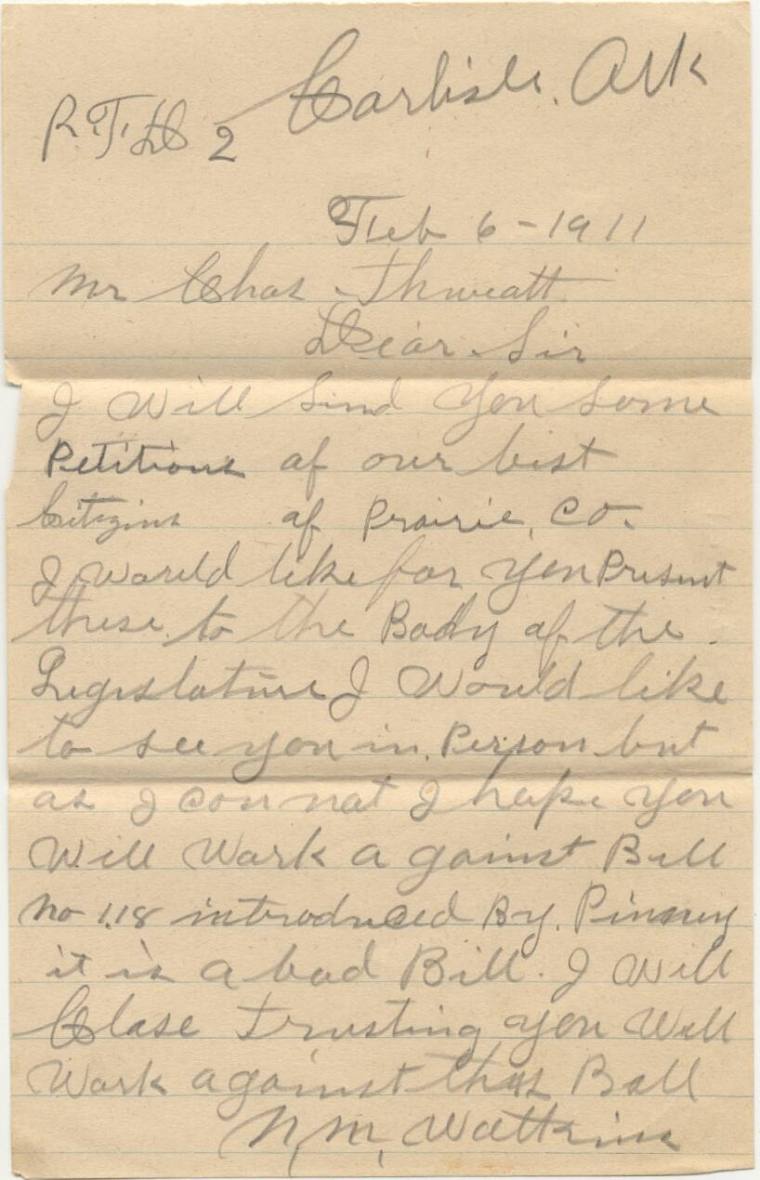 Carlisle, Ark
R.F.D 2
Feb 6-1911
Mr Chas Thweatt
Dear Sir
I Will Send You Some
Petitions of our best
Citizins of Prairie, Co.
I would like for you Present
these to the Body of the
Legislature I Would like
to see you in Person but
as I connot I hope you
Will Work a gainst Bill
No 118 introduced By
it is a bad Bill. I Will
Close Trusting you Will
Work against this Bill
N. M. Watkins